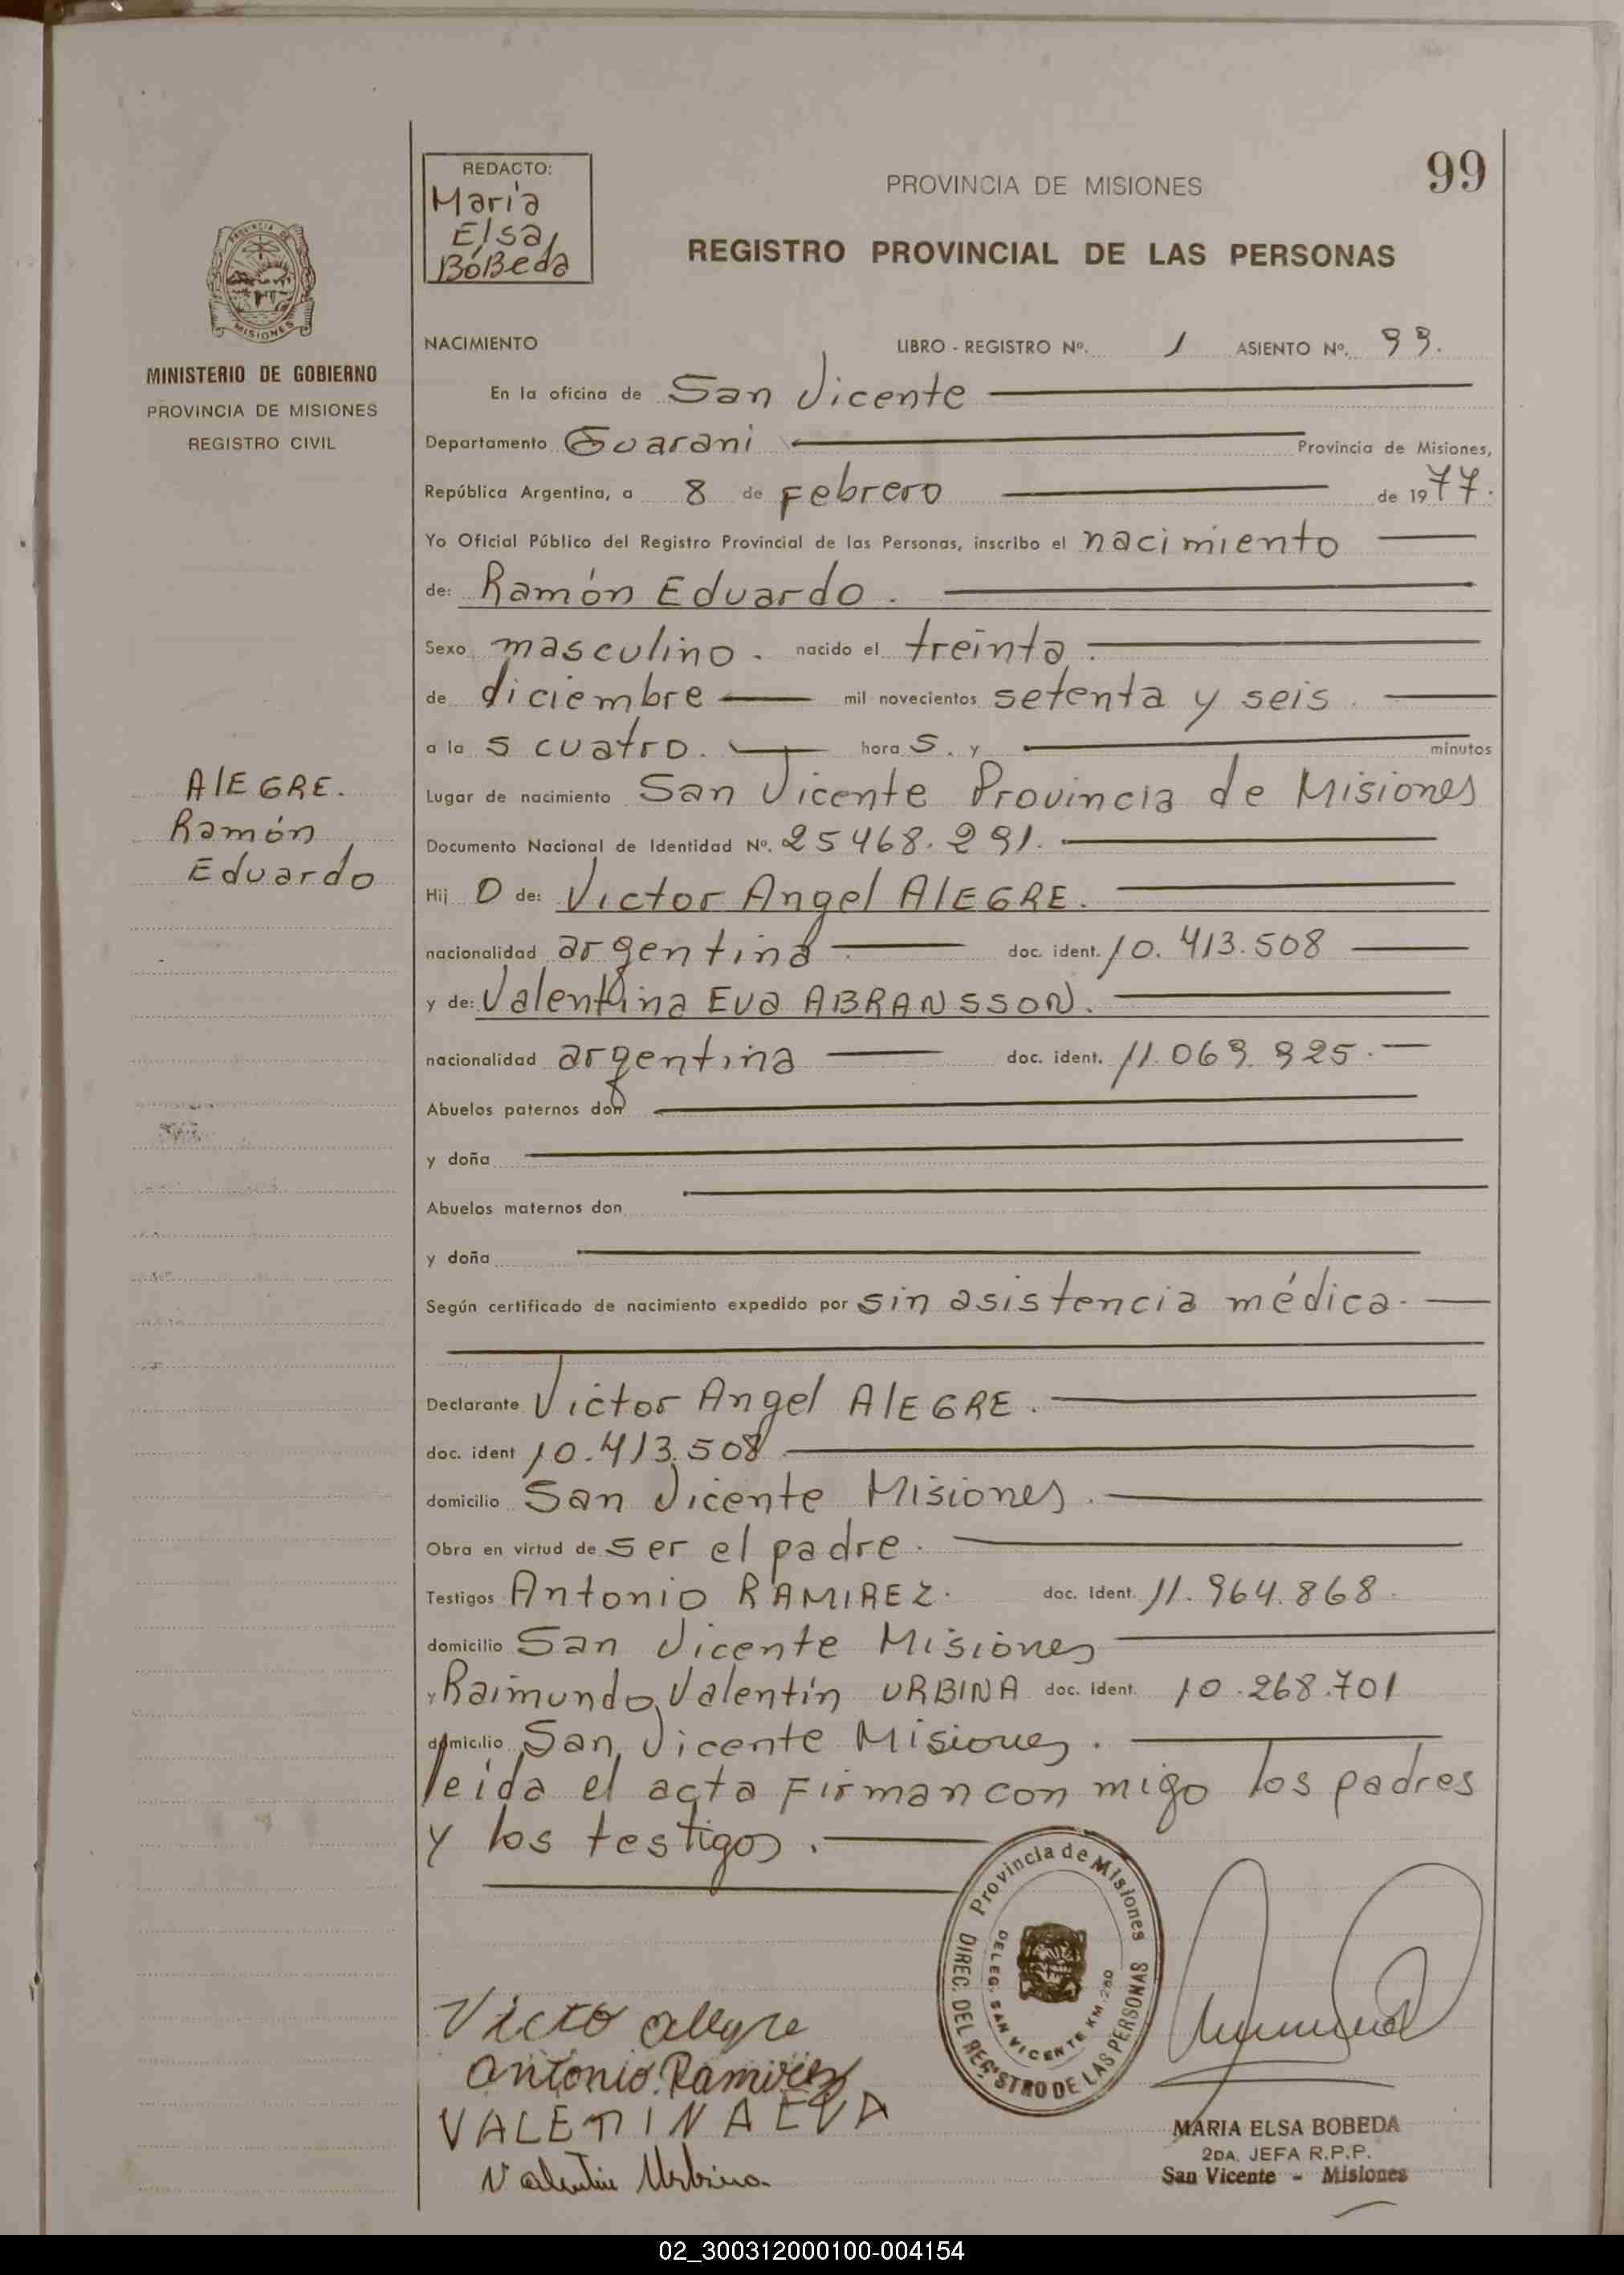 99
REDACTO:
Maria
Elsa
BóBeda
PROVINCIA DE MISIONES
REGISTRO PROVINCIAL DE LAS PERSONAS
PROVINCIA DE
MISIONES
MINISTERIO DE GOBIERNO
PROVINCIA DE MISIONES
REGISTRO CIVIL
NACIMIENTO LIBRO - REGISTRO Nº. 1 ASIENTO Nº. 99.
En la oficina de San Vicente
Departamento Guarani Provincia de Misiones,
República Argentina, a 8 de Febrero de 1977.
Yo Oficial Público del Registro Provincial de las Personas, inscribo el nacimiento
de: Ramón Eduardo.
Sexo masculino. nacido el treinta.
de diciembre mil novecientos setenta y seis.
a las cuatro. horas. y minutos
AlEGRE.
Ramón
Eduardo
Lugar de nacimiento San Vicente Provincia de Misiones
Documento Nacional de Identidad Nº. 25468.291.
Hijo de: Victor Angel AlEGRE.
nacionalidad argentina doc. ident. 10.413.508
y de: Valentina Eva ABRANSSON.
nacionalidad argentina doc. ident. 11.069.925.
Abuelos paternos don
y doña
Abuelos maternos don
y doña
Según certificado de nacimiento expedido por sin asistencia médica.
Declarante Victor Angel AlEGRE.
doc. ident 10.413.508
domicilio San Vicente Misiones.
Obra en virtud de ser el padre.
Testigos Antonio RAMIREZ. doc. Ident. 11.964.868.
domicilio San Vicente Misiones
y Raimundo Valentín URBINA doc. Ident. 10.268.701
domicilio San Vicente Misiones.
leida el acta Firman con migo los padres
y los testigos.
Provincia de Misiones
DIREC. DEL REGISTRO DE LAS PERSONAS
DELEG. SAN VICENTE KM. 280
Victo allgre
Antonio Ramirez
VALENTINA EVA
Valentin Urbina.
MARIA ELSA BOBEDA
2DA. JEFA R.P.P.
San Vicente - Misiones
02_300312000100-004154